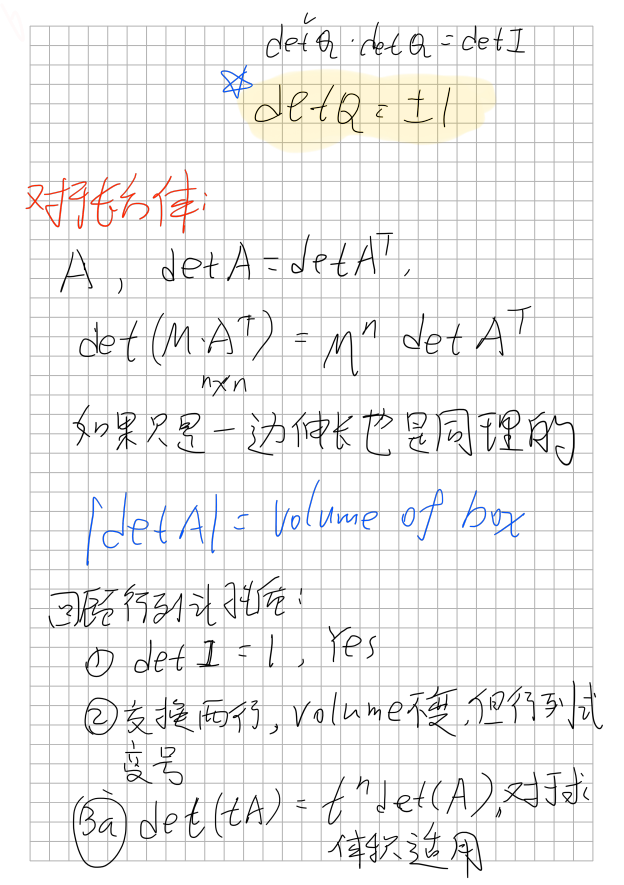 detQ · detQ = detI
☆ detQ = ±1
对于长方体:
A, detA = detAᵀ.
det(M·Aᵀ) = Mⁿ detAᵀ
n×n
如果只是一边伸长也是同理的
|detA| = volume of box
回顾行列式性质:
① det I = 1, Yes
②交换两行, volume不变,但行列式
变号
3a det(tA) = tⁿdet(A),对于求
体积适用